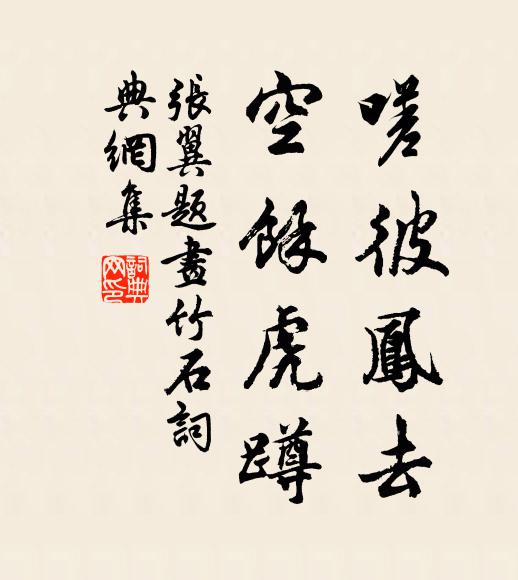 嗟彼鳳去
空餘虎蹲
張翼題畫竹石詞
典網集
詞典網印